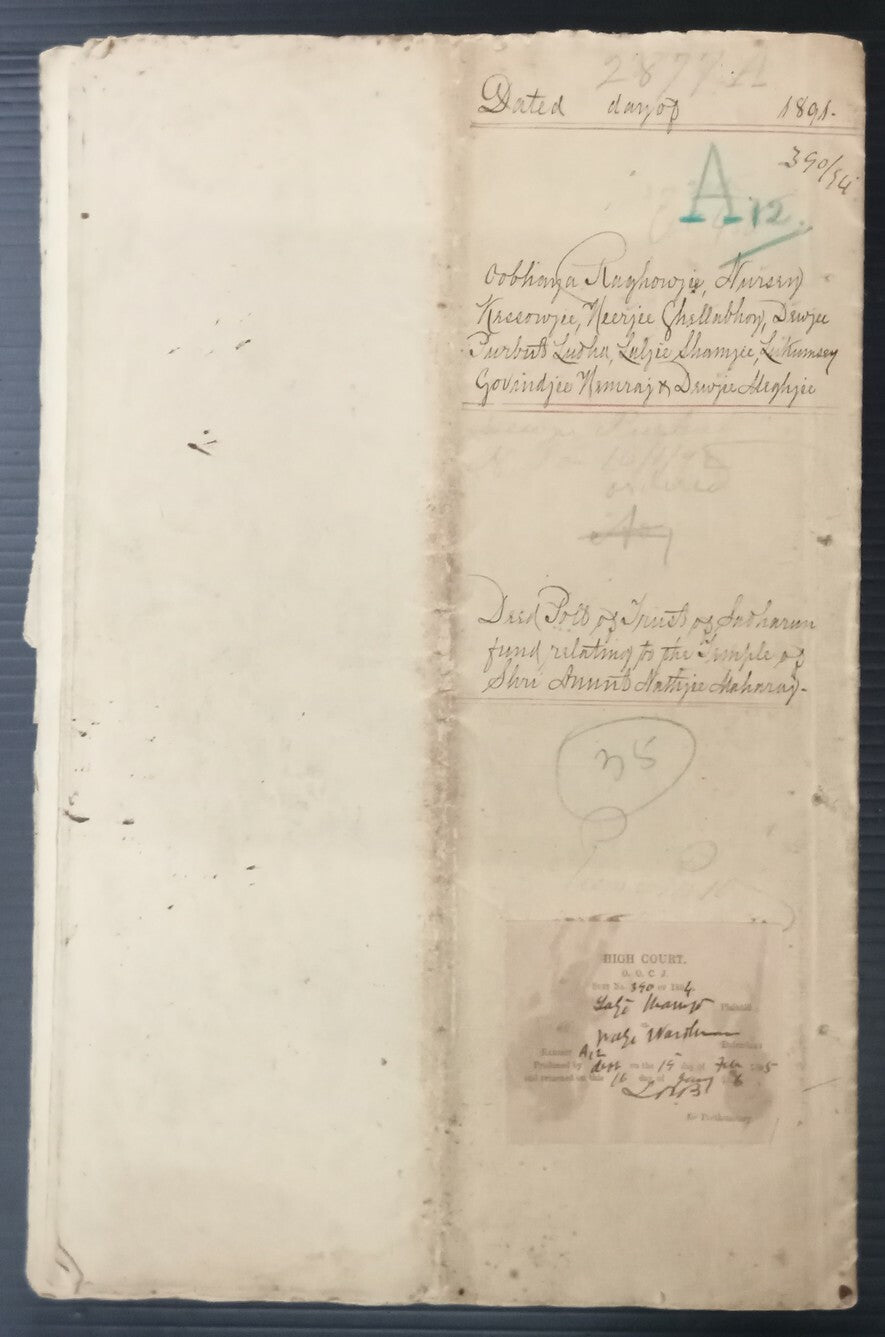 2877 A
Dated day of 1891.
390/94
A 12.
Oobhaya Raghowjee, Nursey
Kessowjee, Neerjee Ghellabhoy, Dewjee
Purbut Ludha, Laljee Shamjee, Lukumsey
Govindjee Hemraj & Dewjee Meghjee
ordered
Deed Poll of Trust of Sadharun
fund relating to the Temple of
Shri Anunt Nathjee Maharaj-
35
HIGH COURT.
O. O. C. J.
Suit No. 390 of 1894.
Plaintiff
Defendant
Exhibit A12
Produced by deft on the 15 day of Feb
and returned on this 16 day of
for Prothonotary